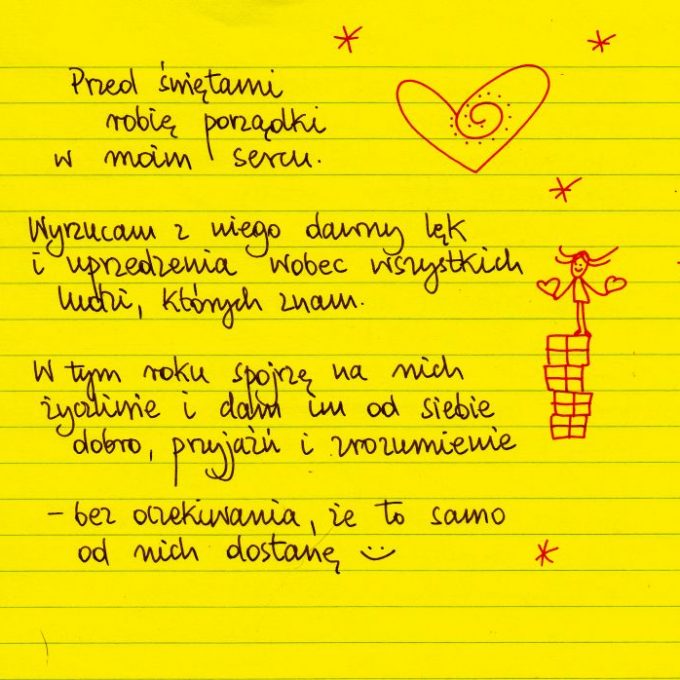 Przed świętami
robię porządki
w moim sercu.
Wyrzucam z niego dawny lęk
i uprzedzenia wobec wszystkich
ludzi, których znam.
W tym roku spojrzę na nich
życzliwie i dam im od siebie
dobro, przyjaźń i zrozumienie
- bez oczekiwania, że to samo
od nich dostanę :)